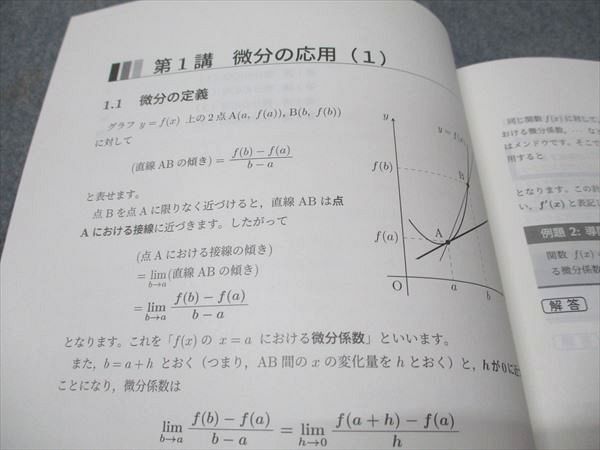 第1講 微分の応用（1）
1.1 微分の定義
グラフ y = f(x) 上の2点 A(a, f(a)), B(b, f(b))
に対して
(直線 AB の傾き) = \frac{f(b) − f(a)}{b − a}
と表せます。
点 B を点 A に限りなく近づけると，直線 AB は点
A における接線に近づきます。したがって
(点 A における接線の傾き)
= \lim_{b→a} (直線 AB の傾き)
= \lim_{b→a} \frac{f(b) − f(a)}{b − a}
となります。これを「f(x) の x = a における微分係数」といいます。
また，b = a + h とおく（つまり，AB 間の x の変化量を h とおく）と，h が 0 に近
ことになり，微分係数は
\lim_{b→a} \frac{f(b) − f(a)}{b − a} = \lim_{h→0} \frac{f(a + h) − f(a)}{h}
y
y = f(x)
f(b)
B
f(a)
A
O
a
b
同じ関数 f(x) に対して，
おける微分係数，… な
はメンドウです。そこで
用すると
となります。この計
い，f′(x) と表記し
例題 2: 導関
関数 f(x) =
る微分係数
解答